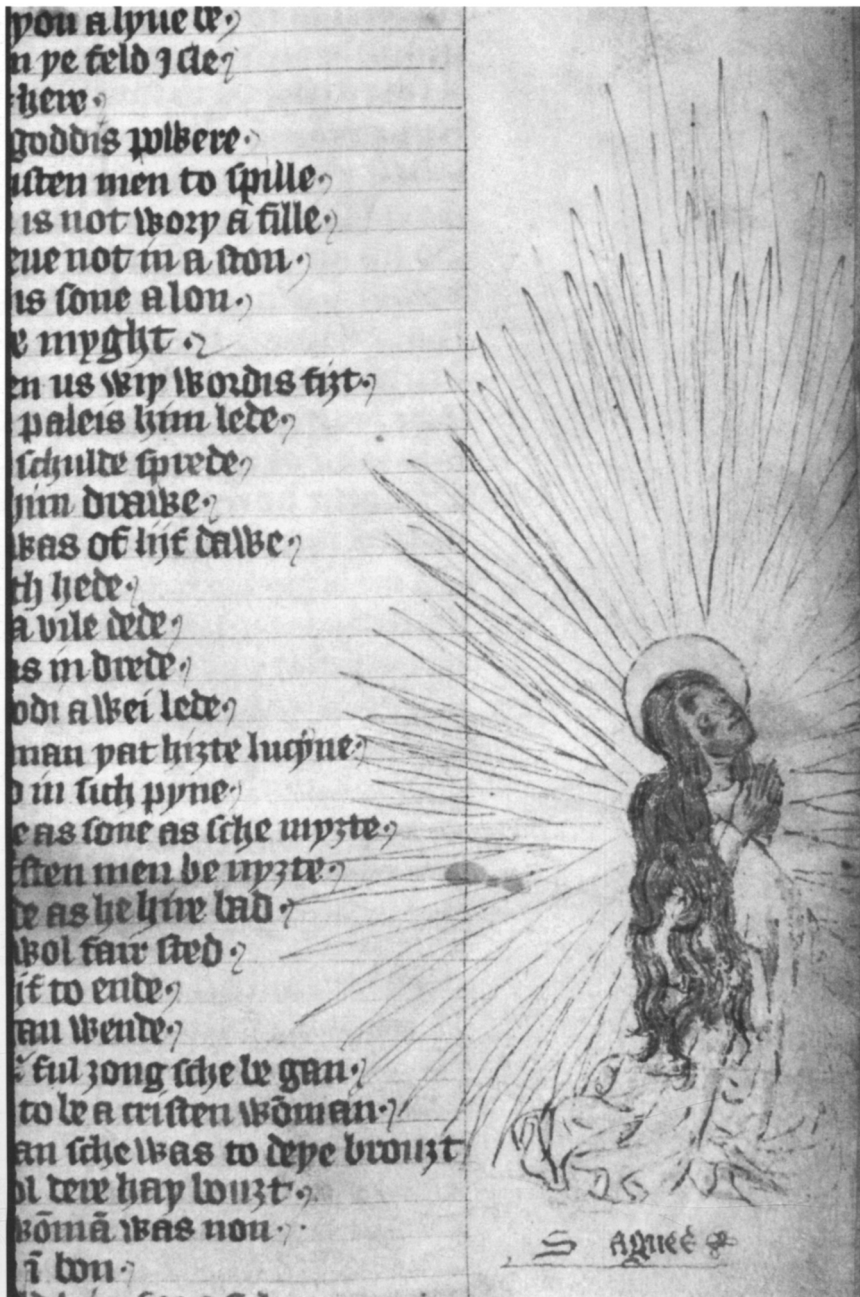 you a lyue de
n þe feld I cle
here
goddis powere
isten men to spille
is not worþ a fille
eue not in a ston
is sone alon
e myght
en us wiþ wordis fiȝt
paleis him lede
schulde sprede
him drawe
was of lijf dawe
th hede
a vile dede
as in drede
odi a wei lede
man þat hiȝte lucyne
d in sich pyne
e as sone as sche myȝte
isten men be nyȝte
de as he hire bad
wol fair sted
ijf to ende
an wende
ful ȝong sche be gan
to be a cristen wōman
an sche was to deþe brouȝt
ol dere haþ bouȝt
wōmā was non
ī bon
S agnes